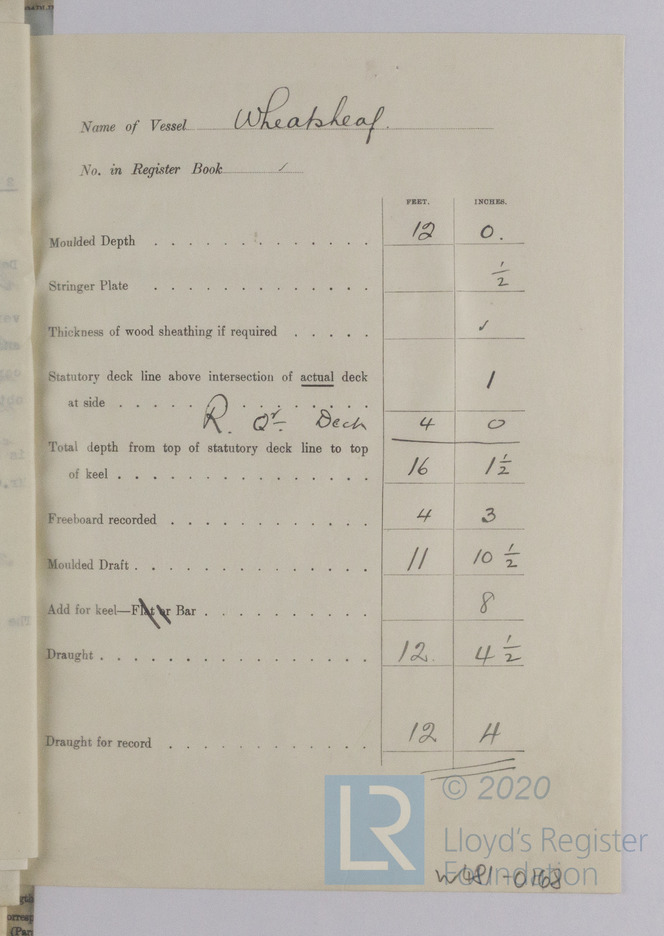 Name of Vessel Wheatsheaf.
No. in Register Book ✓
FEET. INCHES.
Moulded Depth . . . . . . . . . . . . 12 0.
Stringer Plate . . . . . . . . . . . . 1/2
Thickness of wood sheathing if required . . . . . ✓
Statutory deck line above intersection of actual deck
at side . . . . . . . . . . . . . . 1
R. Qr. Deck 4 0
Total depth from top of statutory deck line to top
of keel . . . . . . . . . . . . . . 16 1 1/2
Freeboard recorded . . . . . . . . . . . 4 3
Moulded Draft . . . . . . . . . . . . . 11 10 1/2
Add for keel—Flat or Bar . . . . . . . . . 8
Draught . . . . . . . . . . . . . . . 12. 4 1/2
Draught for record . . . . . . . . . . . 12 4
LR
© 2020
Lloyd's Register
Foundation
W481-0168